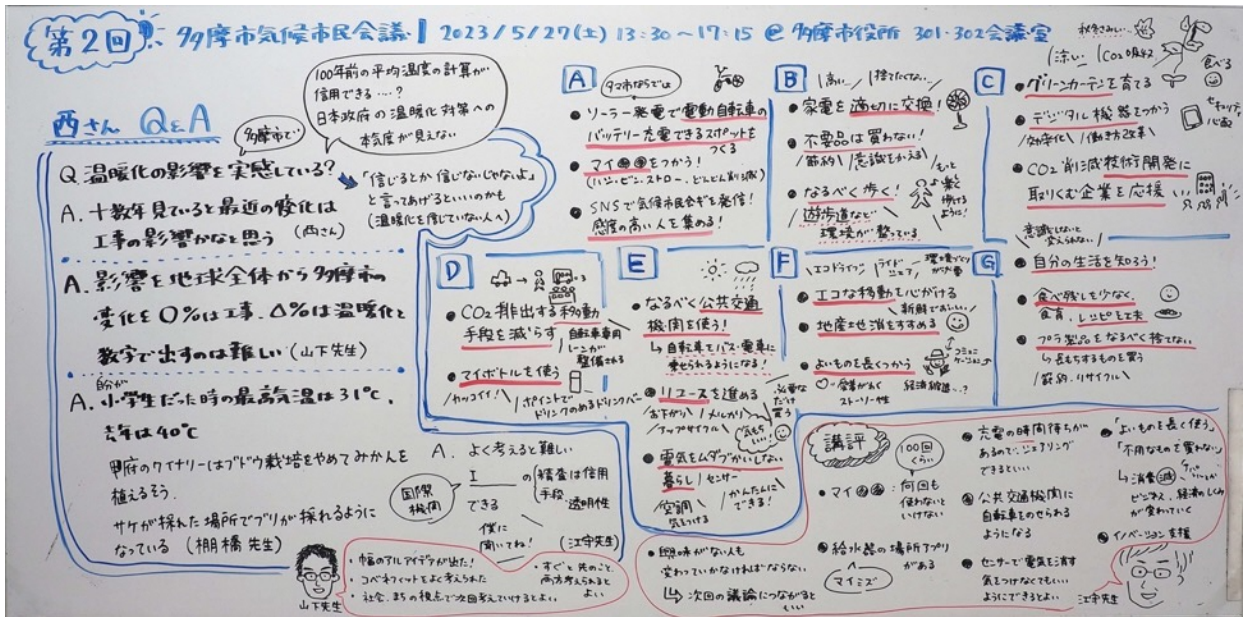 第2回
多摩市気候市民会議 2023/5/27(土) 13:30～17:15 @ 多摩市役所 301・302会議室
西さん Q&A
100年前の平均温度の計算が
信用できる....?
日本政府の温暖化対策への
本気度が見えない
多摩市で
Q.温暖化の影響を実感している?
「信じるとか信じないじゃないよ」
と言ってあげるといいのかも
(温暖化を信じていない人へ)
A. 十数年見ていると最近の変化は
工事の影響かなと思う (西さん)
A.影響を地球全体から多摩市の
変化を〇%は工事、△%は温暖化と
数字で出すのは難しい (山下先生)
自分が
A. 小学生だった時の最高気温は31℃、
去年は40℃
甲府のワイナリーはブドウ栽培をやめてみかんを
植えるそう.
サケが採れた場所でブリが採れるように
なっている (棚橋先生)
A. よく考えると難しい
国際機関
I
できる
の
精査は信用
手段
透明性
僕に
聞いてね!
(江守先生)
山下先生
・幅のアルアイデアが出た!
・コベネフィットをよく考えられた
・社会、まちの視点で次回考えていけるとよい
・すぐと先のこと
両方考えられると
よい
A
タマ市ならでは
● ソーラー発電で電動自転車の
バッテリー充電できるスポットを
つくる
● マイ●●をつかう!
(ハシ・ビン・ストロー、どんどん削減)
● SNSで気候市民会議を発信!
感度の高い人を集める!
B
高い
捨てたくない..
● 家電を適切に交換!
● 不要品は買わない!
節約
意識をかえる
● なるべく歩く!
遊歩道など
環境が整っている
もっと
楽しく
歩ける
ように!
C
涼しい
CO2吸収
食べる
● グリーンカーテンを育てる
● デジタル機器をつかう
効率化
働き方改革
セキュリティ
心配
● CO2削減技術開発に
取りくむ企業を応援
D
● CO2排出する移動
手段を減らす
自転車専用
レーンが
整備される
● マイボトルを使う
カッコイイ!
ポイントで
ドリンクのめるドリンクバー
E
● なるべく公共交通
機関を使う!
↳ 自転車をバス・電車に
乗せられるようになる!
● リユースを進める
お下がり
メルカリ
アップサイクル
必要な
だけ
買う
気もちいい!
● 電気をムダづかいしない
暮らし
センサー
空調
気をつける
かんたんに
できる!
F
エコドライブ
ライドシェア
環境づくり
が必要
● エコな移動を心がける
● 地産地消をすすめる
新鮮でおいしい
● よいものを長くつかう
♡-愛着がわく
ストーリー性
コミュニ
ケーション
経済縮退..?
G
意識しないと
変えられない
● 自分の生活を知ろう!
● 食べ残しを少なく
食育、レシピを工夫
● プラ製品をなるべく捨てない
↳ 長もちするものを買う
節約、リサイクル
講評
100回
くらい
・マイ●● : 何回も
使わないと
いけない
● 給水器の場所アプリ
がある
マイミズ
● 興味がない人も
変わっていかなければならない
↳ 次回の議論につながると
いい
● 充電の時間待ちが
あるので、シェアリング
できるといい
● 公共交通機関に
自転車をのせられる
ようになる
● センサーで電気を消す
気をつけなくてもいい
ようにできるとよい
●「よいものを長く使う」
「不用なもので買わない」
↳ 消費減
ビジネス、経済のしくみ
が変わっていく
● イノベーション支援
江守先生